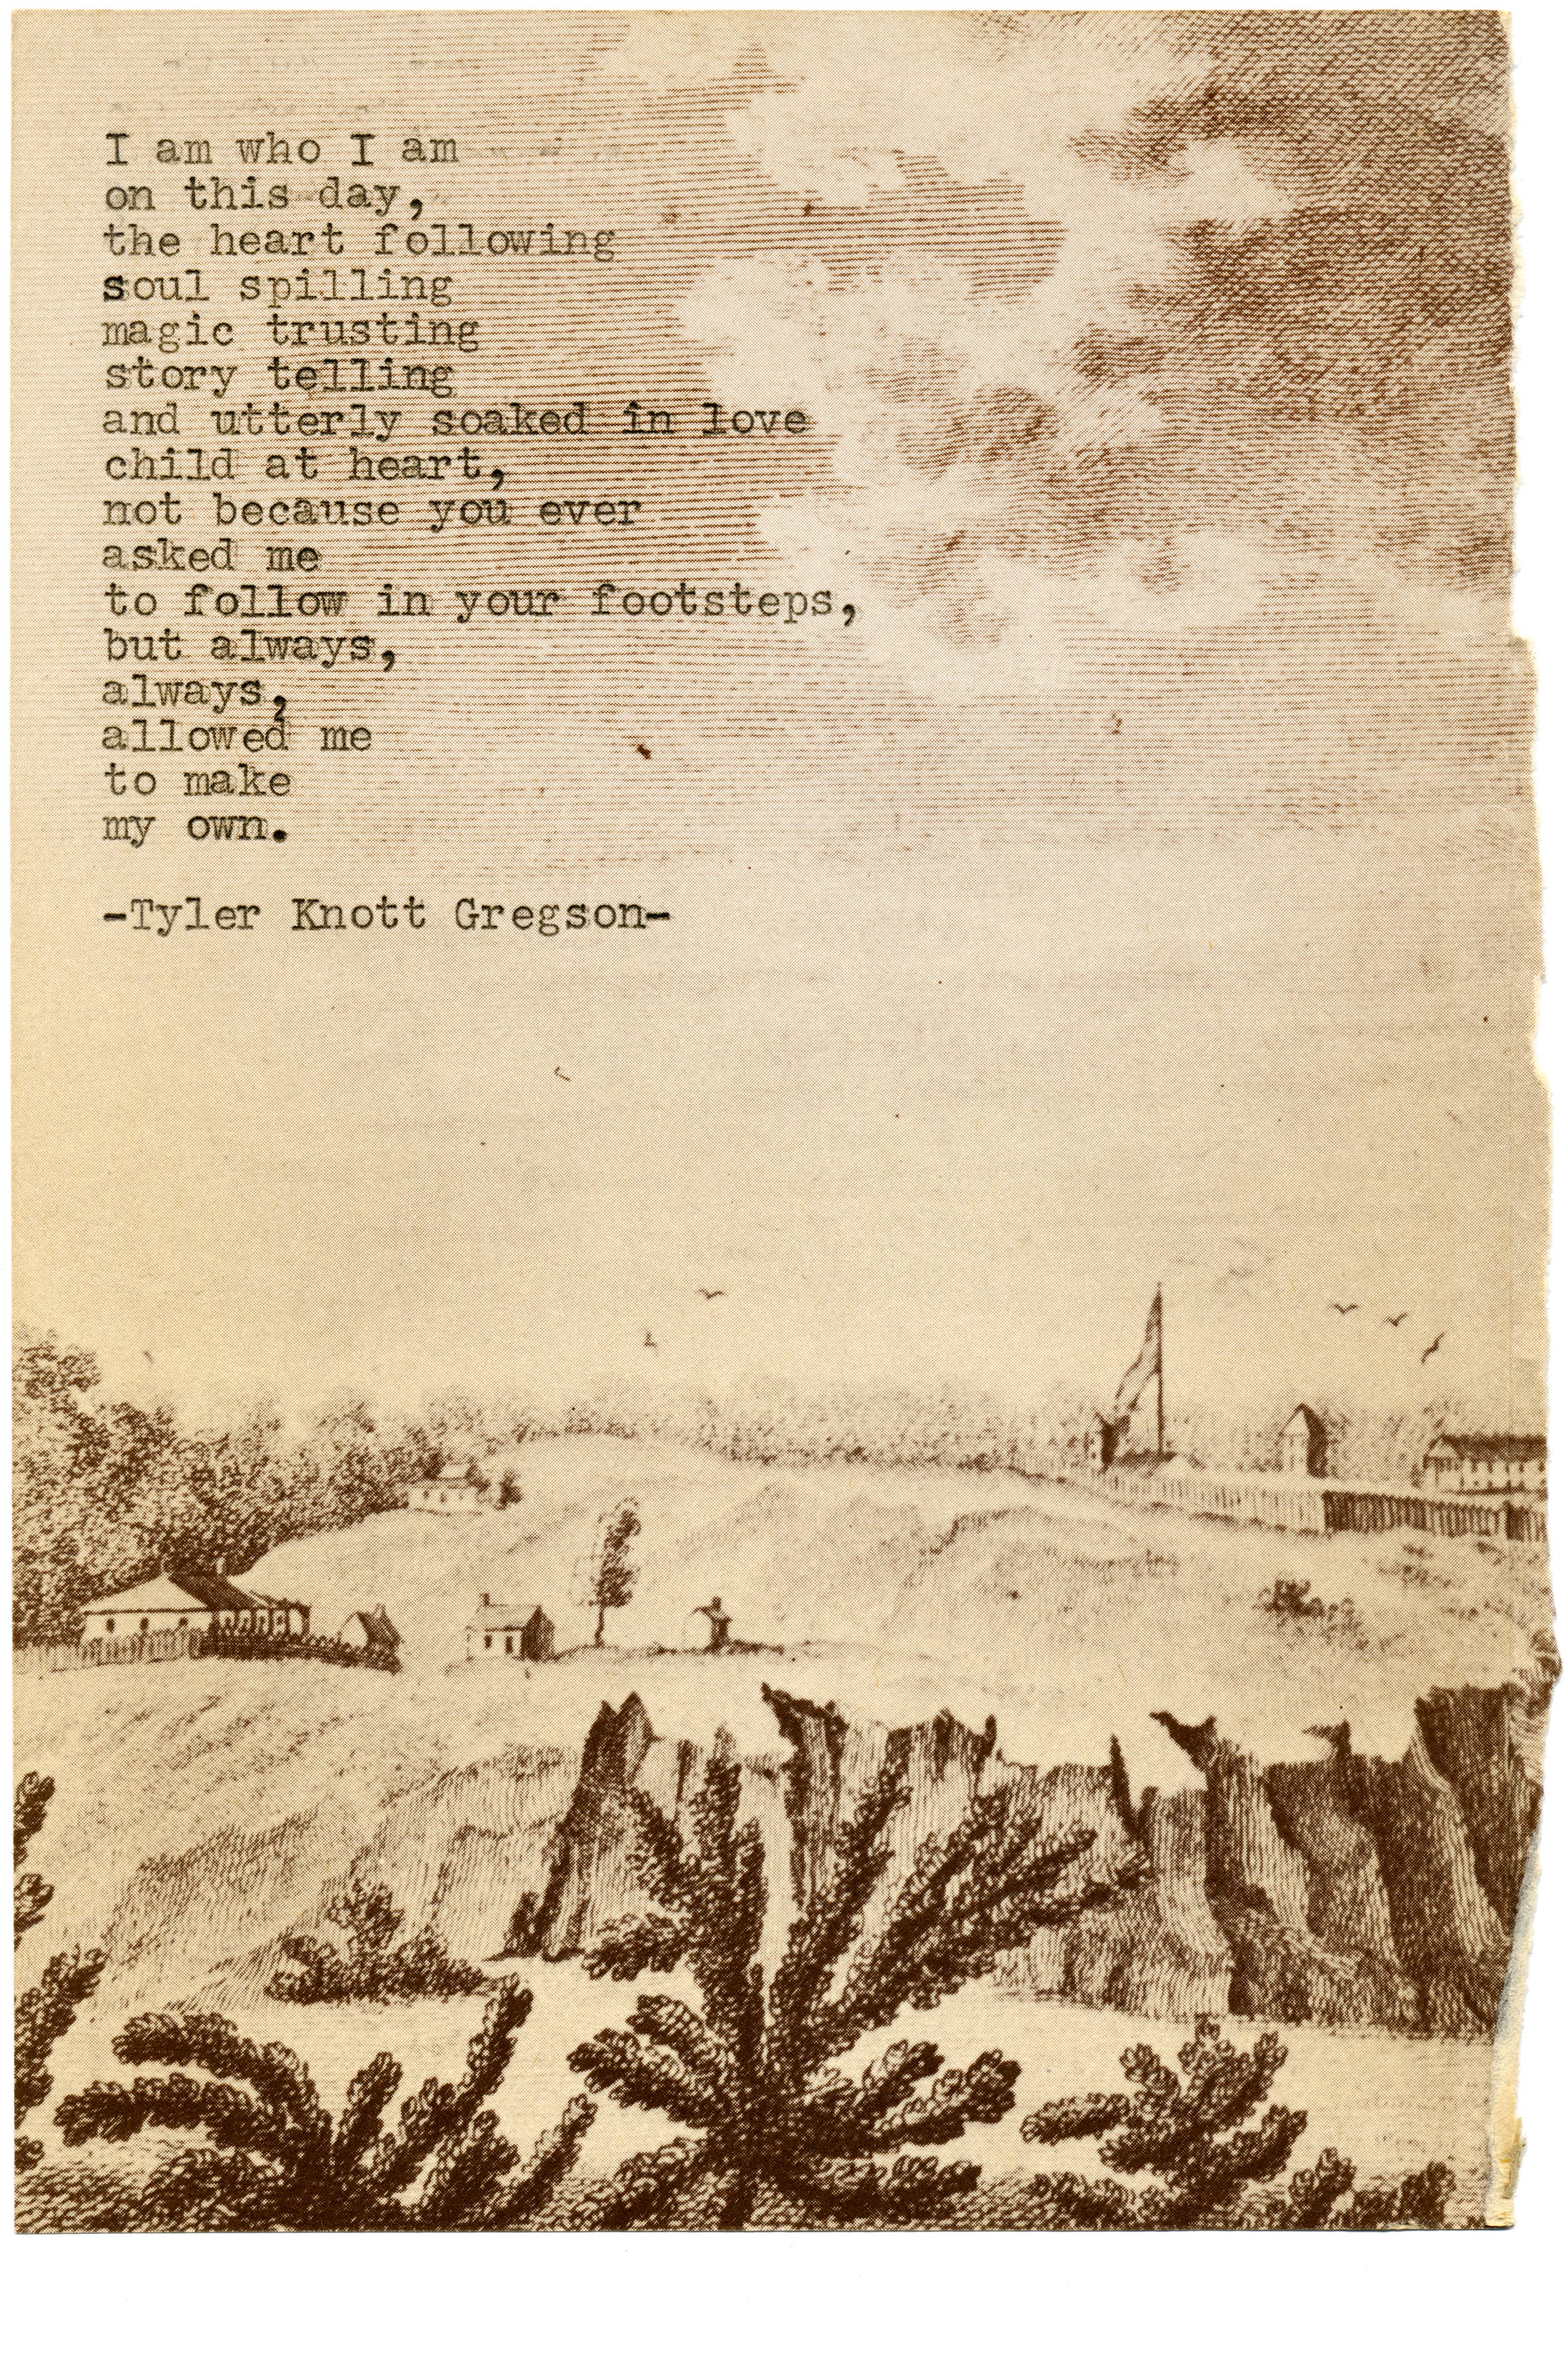 I am who I am
on this day,
the heart following
soul spilling
magic trusting
story telling
and utterly soaked in love
child at heart,
not because you ever
asked me
to follow in your footsteps,
but always,
always,
allowed me
to make
my own.
-Tyler Knott Gregson-